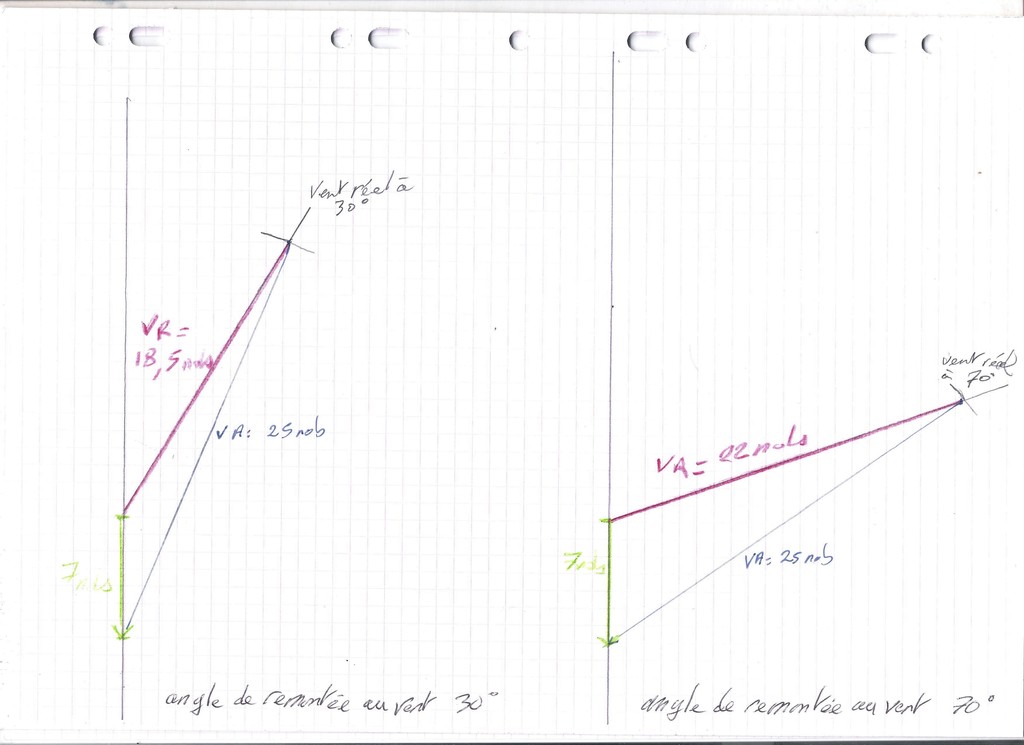 vent réel à
30°
VR=
18,5 nds
VA: 25 nds
7 nds
angle de remontée au vent 30°
vent réel
à 70°
VR= 22 nds
7 nds
VA= 25 nds
angle de remontée au vent 70°